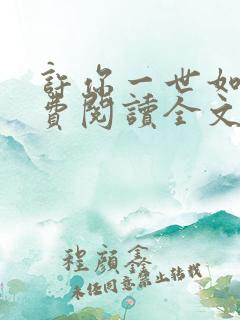 許你一世如
費閱讀全文
程顧鑫
未经同意禁止转载